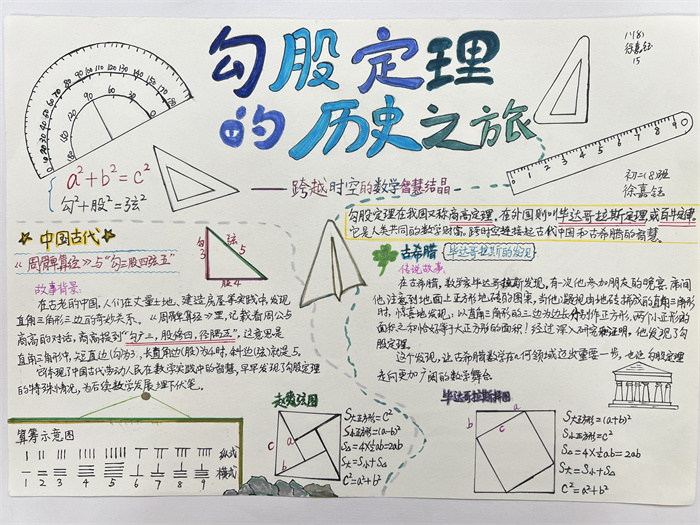 勾股定理
的历史之旅
八(8)
徐嘉钰
15
初二(8)班
徐嘉钰
a²+b²=c²
勾²+股²=弦²
——跨越时空的数学智慧结晶
勾股定理在我国又称商高定理，在外国则叫毕达哥拉斯定理或百牛定理
它是人类共同的数学财富。跨时空链接起古代中国和古希腊的智慧。
中国古代
《周髀算经》与“勾三股四弦五”
勾
3
弦
5
股4
故事背景:
在古老的中国，人们在丈量土地、建造房屋等实践中，发现
直角三角形三边的奇妙关系。《周髀算经》里，记载着周公与
商高的对话，商高提到“勾广三，股修四，径隅五”，这意思是
直角三角形中，短直边(勾)为3，长直角边(股)为4时，斜边(弦)就是5。
它体现了中国古代劳动人民在数学实践中的智慧，早早发现了勾股定理
的特殊情况，为后续数学发展埋下伏笔。
古希腊
毕达哥拉斯的发现
传说故事:
在古希腊，数学家毕达哥拉斯发现，有一次他参加朋友的晚宴，席间
他注意到地面上正方形地砖的图案，当他凝视由地砖拼成的直角三角形
时，惊喜地发现：以直角三角形的三边为边长分别作正方形，两个小正方形的
面积之和恰好等于大正方形的面积！经过深入研究和证明，他发现了勾
股定理。
这个发现，让古希腊数学在几何领域迈出重要一步，也让勾股定理
走向更加广阔的数学舞台
算筹示意图
纵式
横式
1 2 3 4 5 6 7 8 9
赵爽弦图
c
a
b
S大正方形=C²
S小正方形=(a-b)²
S△=4×½ab=2ab
S大=S小+S△
C²=a²+b²
毕达哥拉斯拼图
a
b
c
S大正方形=(a+b)²
S小正方形=C²
S△=4×½ab=2ab
S大=S小+S△
C²=a²+b²